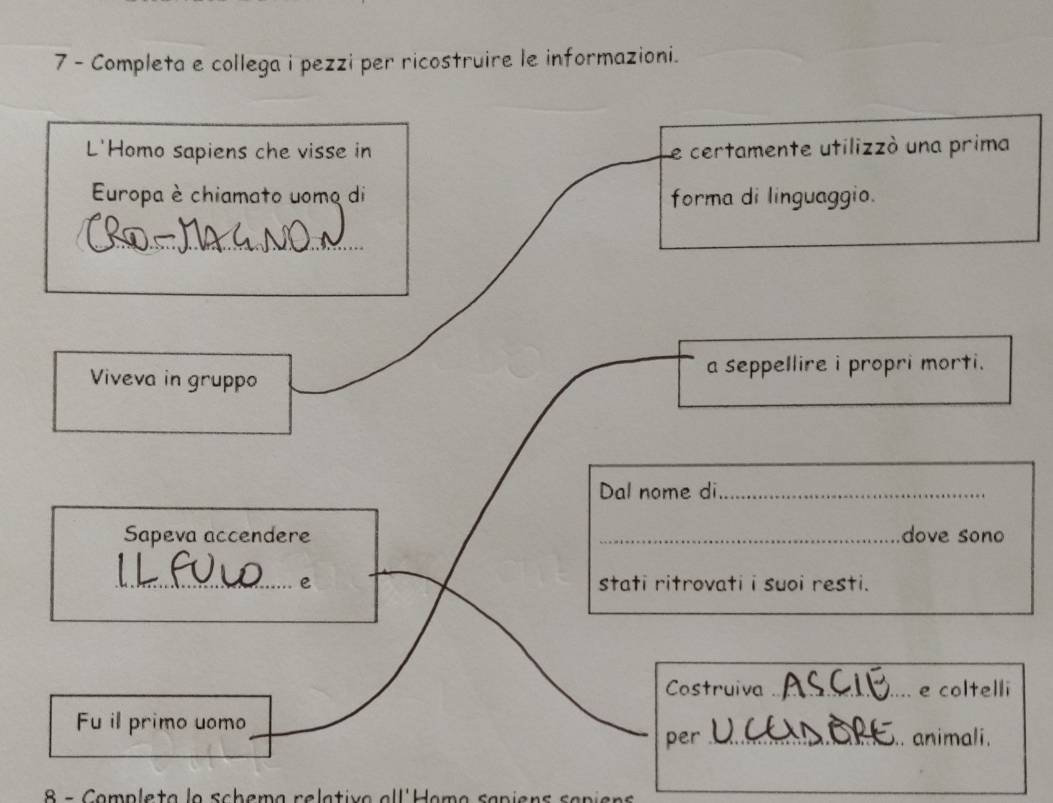 7 - Completa e collega i pezzi per ricostruire le informazioni.
L'Homo sapiens che visse in
Europa è chiamato uomo di
CRO-MAGNON
e certamente utilizzò una prima
forma di linguaggio.
Viveva in gruppo
a seppellire i propri morti.
Sapeva accendere
IL FUCO e
Dal nome di
dove sono
stati ritrovati i suoi resti.
Fu il primo uomo
Costruiva ASCIE e coltelli
per UCCIDERE animali.
8 - Completa lo schema relativo all'Homo sapiens sapiens